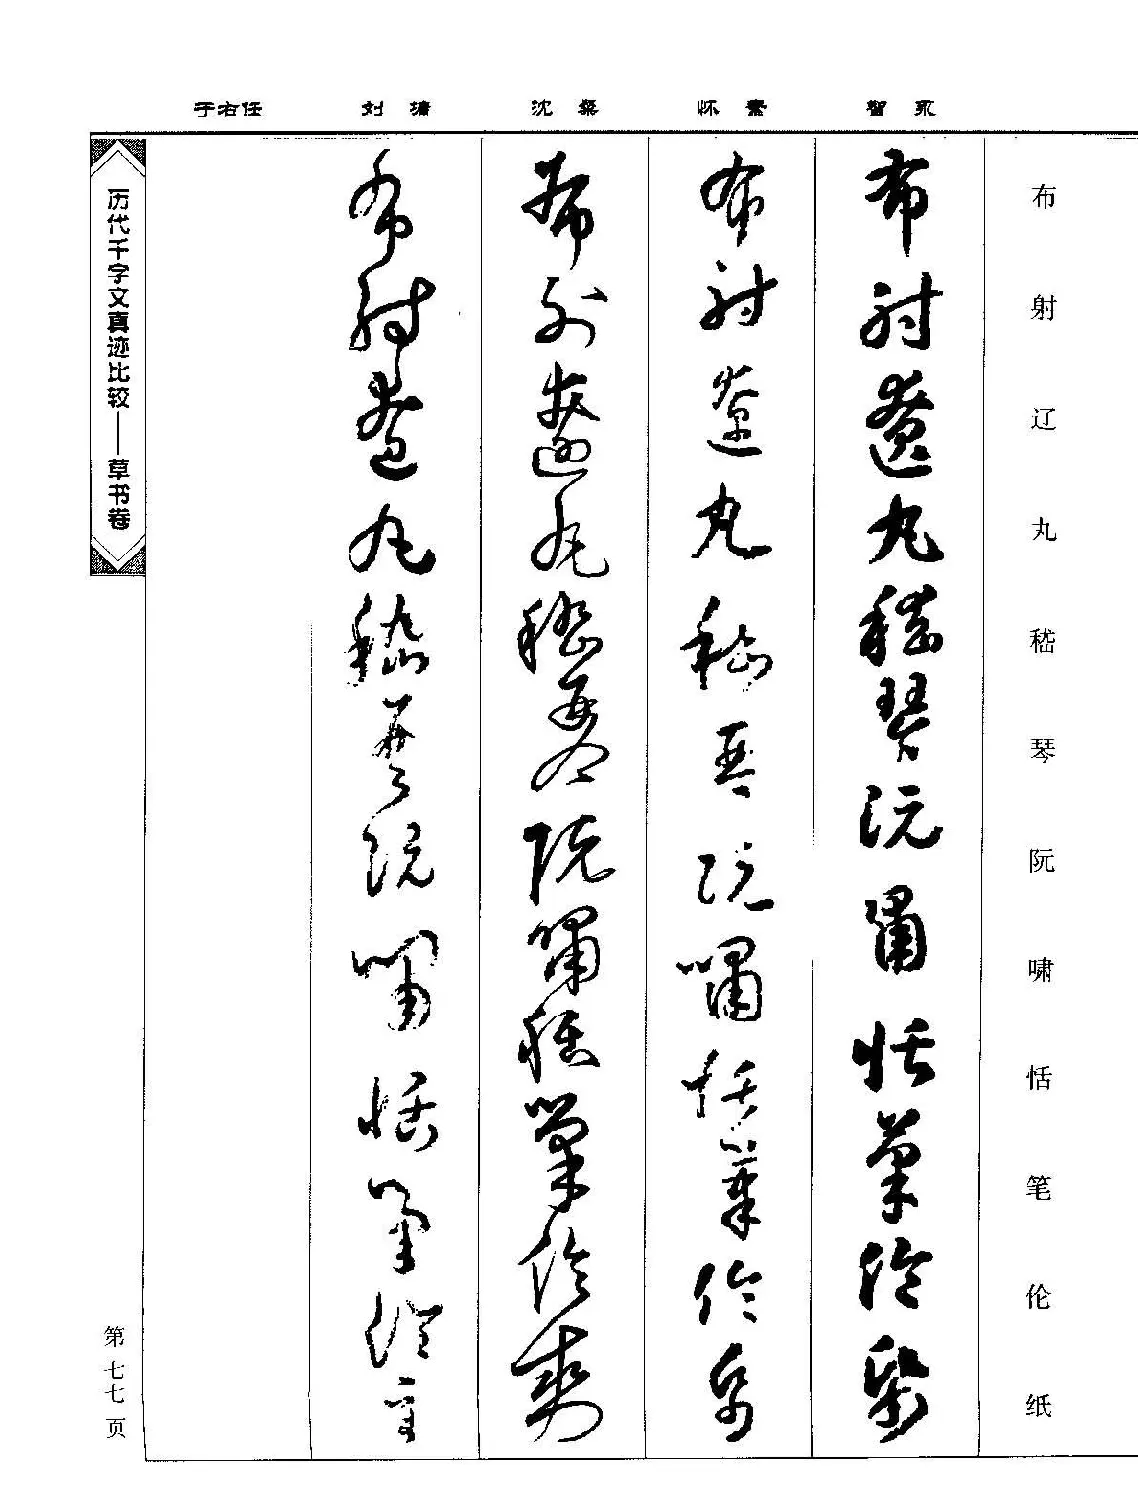 智永
怀素
沈粲
刘墉
于右任
布射辽丸嵇琴阮啸恬笔伦纸
布射辽丸嵇琴阮啸恬笔伦纸
布射辽丸嵇琴阮啸恬笔伦纸
布射辽丸嵇琴阮啸恬笔伦纸
布射辽丸嵇琴阮啸恬笔伦纸
历代千字文真迹比较——草书卷
第七七页